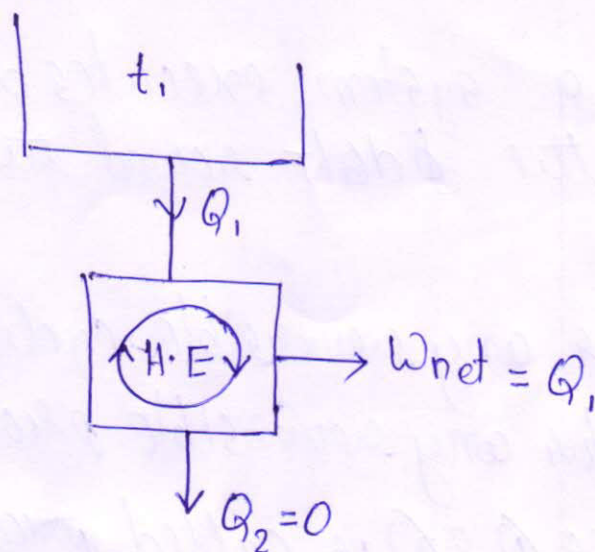 t₁
Q₁
H.E
Wnet = Q₁
Q₂=0